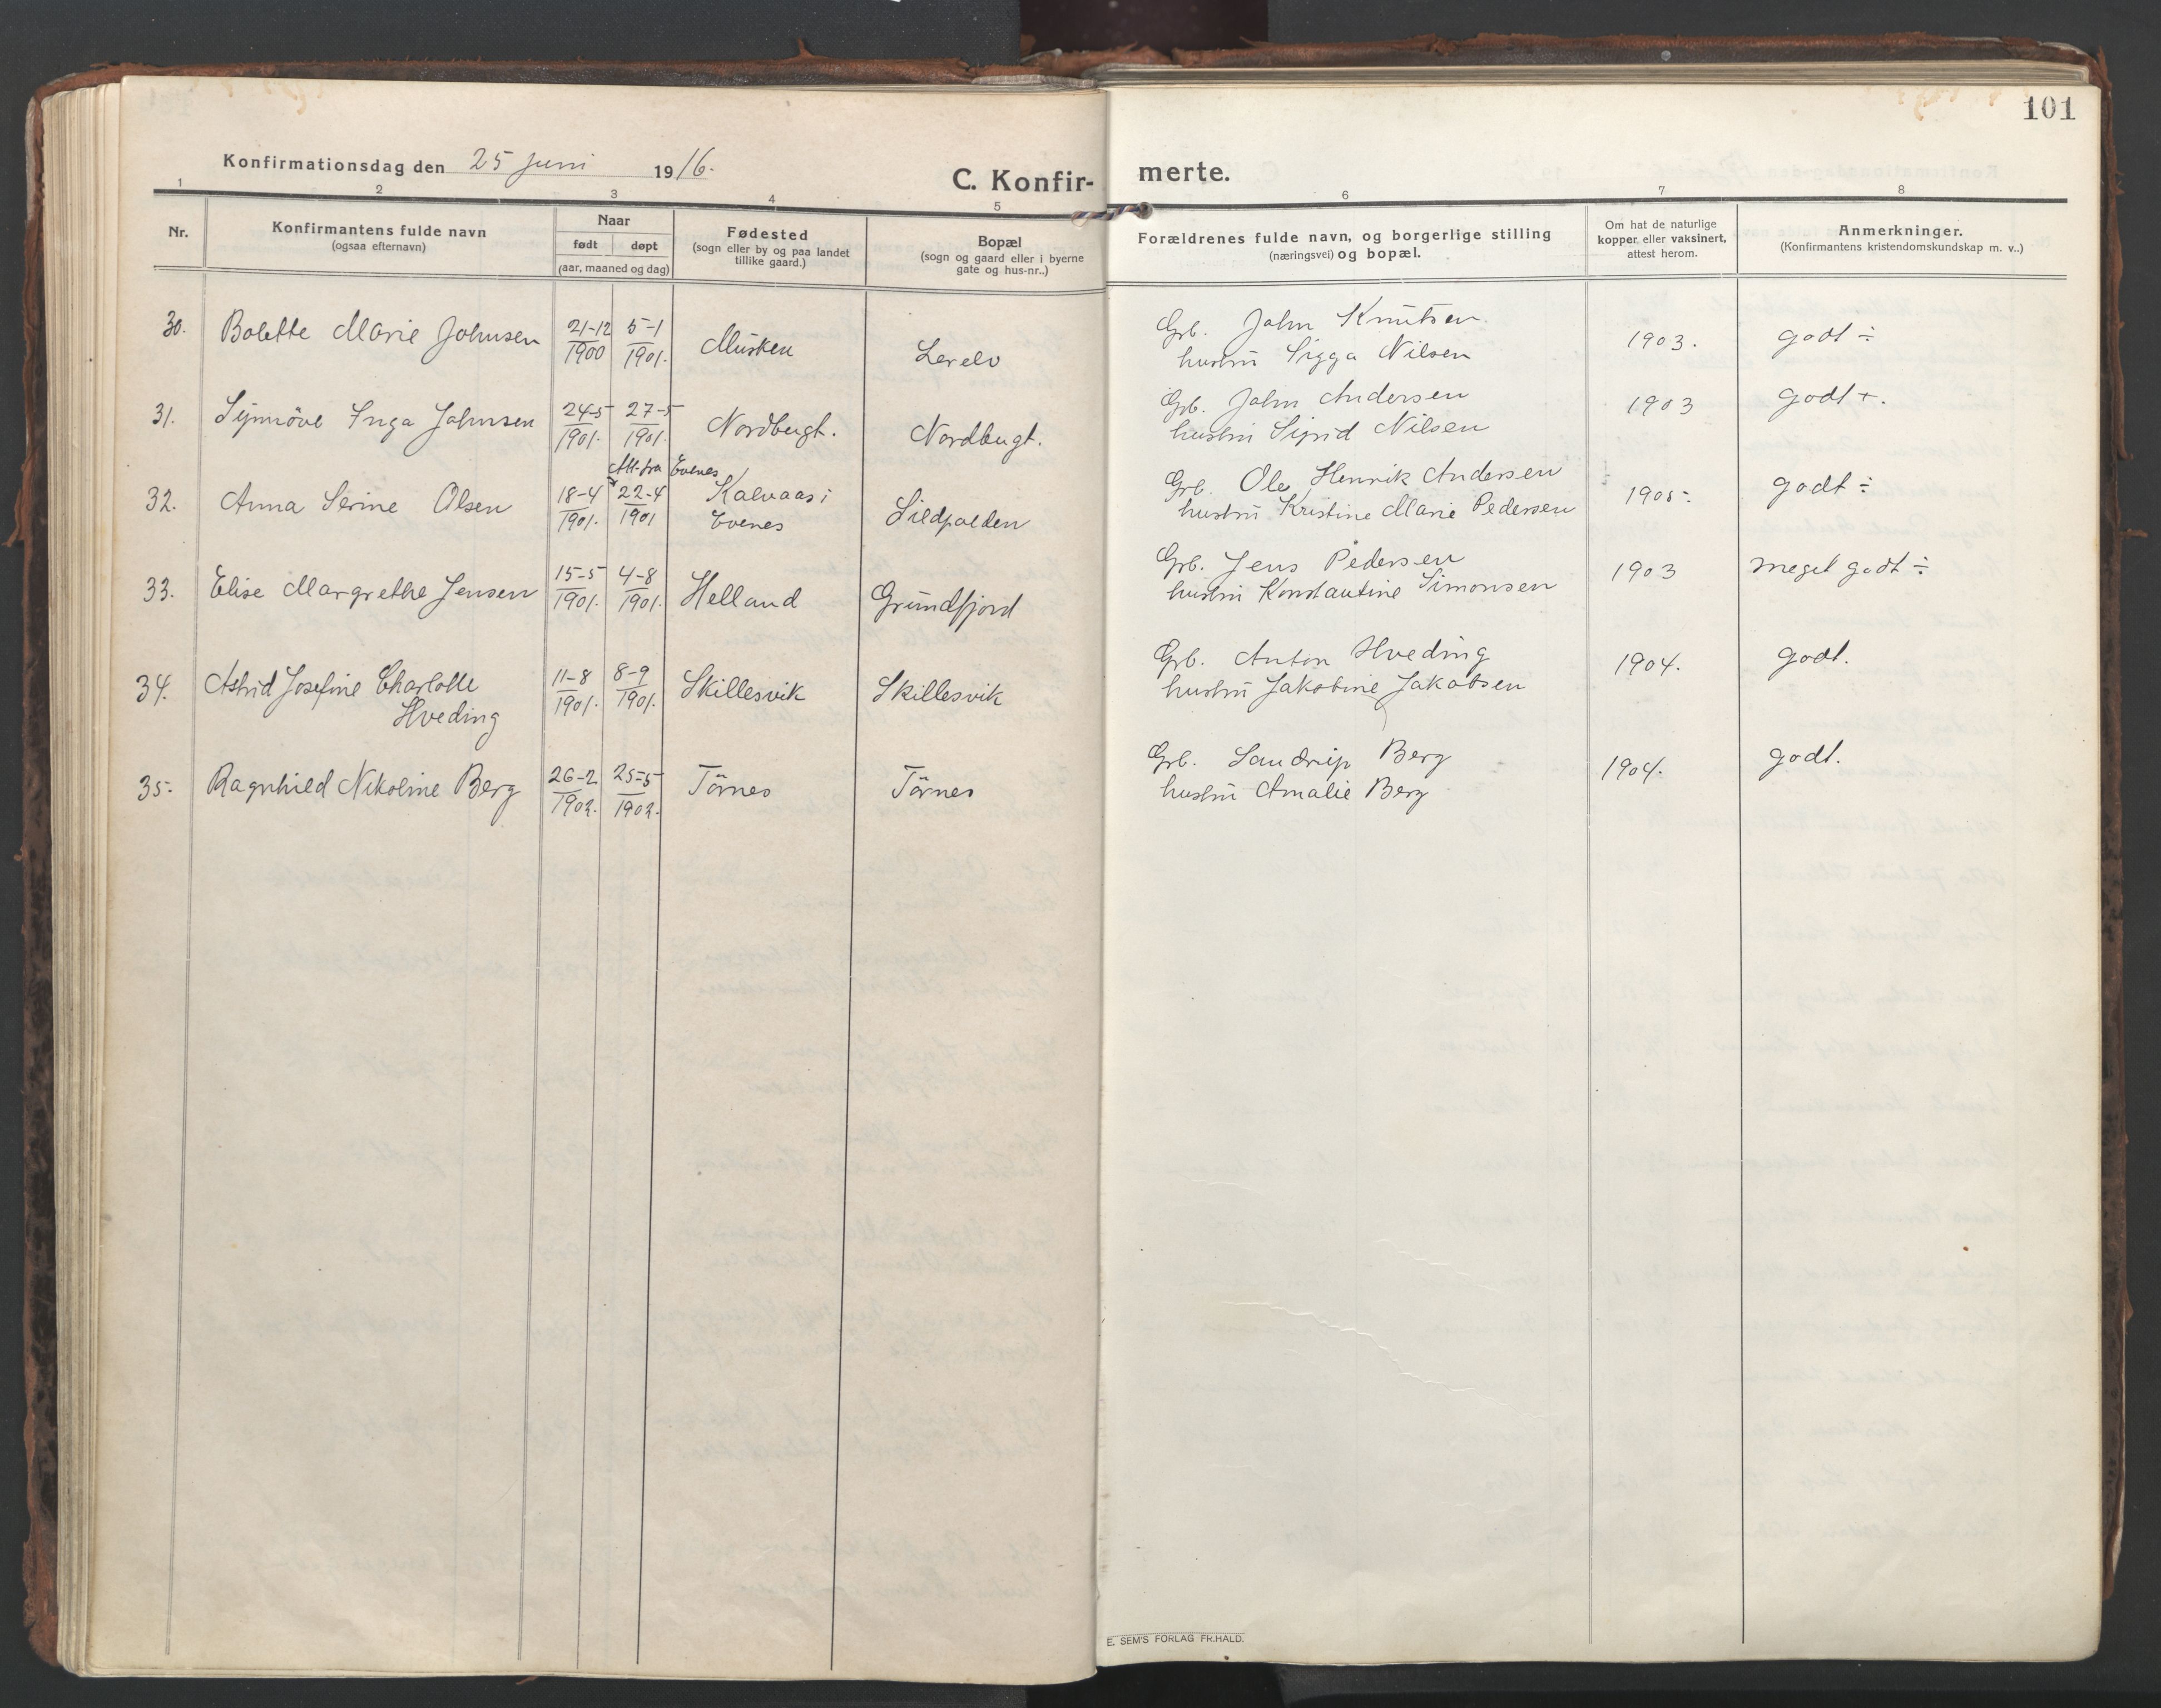 101
Konfirmationsdag den 25 juni 1916.
C. Konfir-
merte.
1 2 3 4 5 6 7 8
Nr.
Konfirmantens fulde navn
(ogsaa efternavn)
Naar
født døpt
(aar, maaned og dag)
Fødested
(sogn eller by og paa landet
tillike gaard.)
Bopæl
(sogn og gaard eller i byerne
gate og hus-nr..)
Forældrenes fulde navn, og borgerlige stilling
(næringsvei) og bopæl.
Om hat de naturlige
kopper eller vaksinert,
attest herom.
Anmerkninger.
(Konfirmantens kristendomskundskap m. v..)
30. Bolette Marie Johnsen 21-12 1900 5-1 1901. Musken Lerelv
Grb. John Knutsen
hustru Sigga Nilsen
1903. godt ÷
31. Synnöve Inga Johnsen 24-5 1901. 27-5 1901. Nordbugt. Nordbugt.
Grb. John Andersen
hustru Sigrid Nilsen
1903 godt +.
Att. fra Evenes
32. Anna Serine Olsen 18-4 1901. 22-4 1901 Kalvaas i
Evenes
Sildpolden
Grb. Ole Henrik Andersen
hustru Kristine Marie Pedersen
1905. godt ÷
33. Elise Margrethe Jensen 15-5 1901. 4-8 1901. Helland Grundfjord
Grb. Jens Pedersen
hustru Konstantine Simonsen
1903 meget godt ÷
34. Astrid Josefine Charlotte
Hveding
11-8 1901. 8-9 1901. Skillesvik Skillesvik
Grb. Anton Hveding
hustru Jakobine Jakobsen
1904. godt.
35. Ragnhild Nikoline Berg 26-2 1902. 25-5 1902. Törnes Törnes
Grb. Sandrup Berg
hustru Amalie Berg
1904. godt.
E. SEM'S FORLAG FR.HALD.